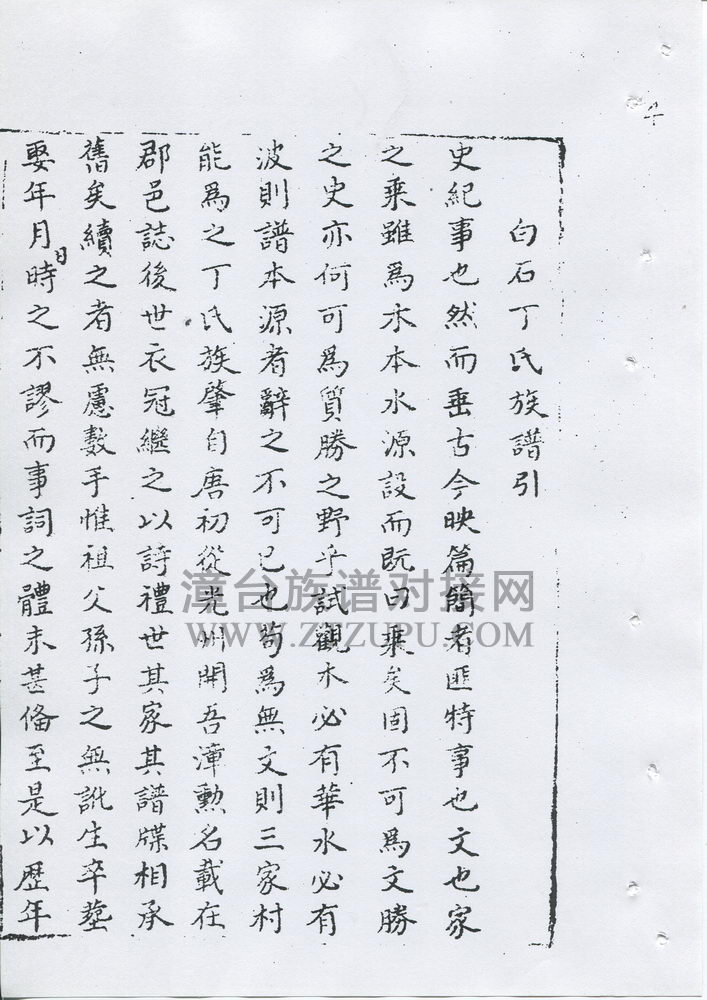 白石丁氏族譜引
史紀事也然而垂古今映篇簡者匪特事也文也家
之乘雖為木本水源設而既曰乘矣固不可為文勝
之史亦何可為質勝之野乎試觀木必有華水必有
波則譜本源者辭之不可已也苟為無文則三家村
能為之丁氏族肇自唐初從光州開吾漳勲名載在
郡邑誌後世衣冠繼之以詩禮世其家其譜牒相承
舊矣續之者無慮數手惟祖父孫子之無訛生卒塟
娶年月日時之不謬而事詞之體未甚俻至是以歷年
漳台族谱对接网
WWW.ZTZUPU.COM